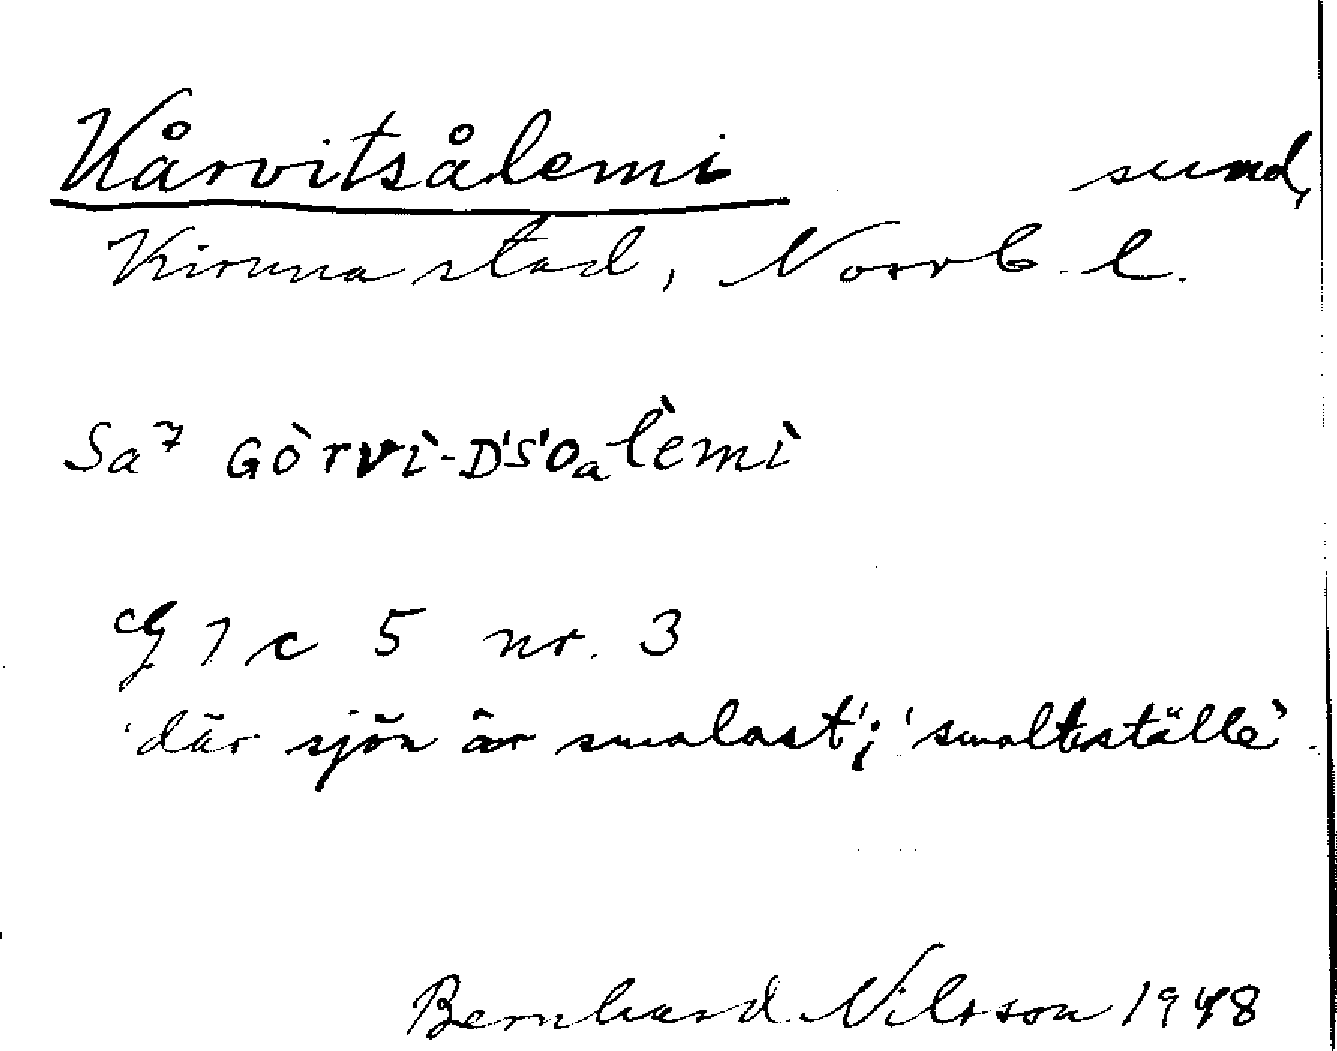 Kårvitsålemi sund,
Kiruna stad, Norrb. l.
Sa7 GÒrvì-D'S'Oalèmì
G 7 c 5 nr. 3
'där sjön är smalast'; 'smaltställe'.
Bernhard Nilsson 1948